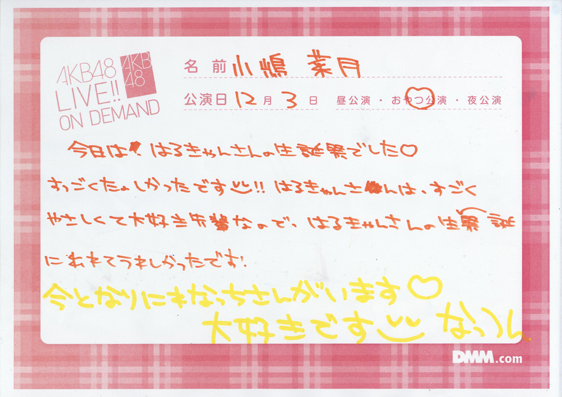 AKB48
LIVE!!
ON DEMAND
AKB
48
名前 小嶋 菜月
公演日 12月 3日 昼公演・おやつ公演・夜公演
今日は はるきゃんさんの生誕祭でした♡
すっごくたのしかったです!! はるきゃんさんは、すごく
やさしくて大好き先輩なので、はるきゃんさんの生祭誕
にでれてうれしかったです!
今となりにねなっちさんがいます♡
大好きです なっつん
DMM.com